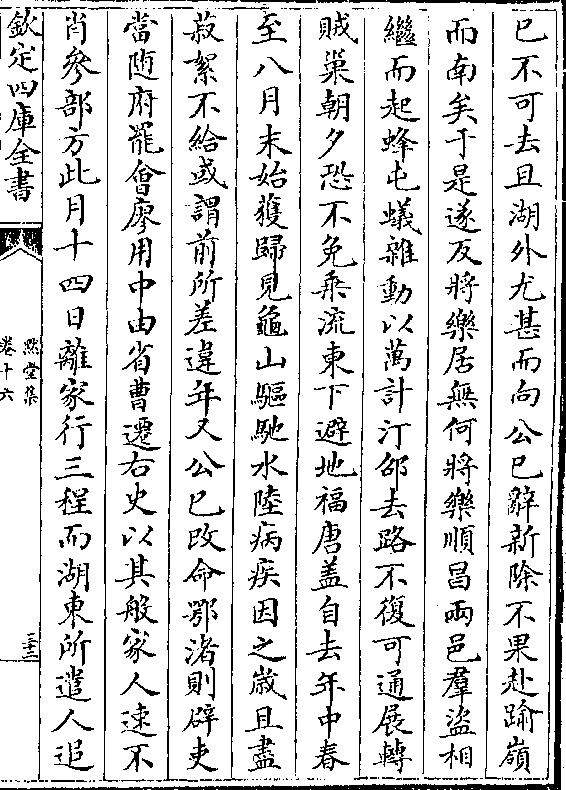 已不可去且湖外尤甚而向公已辭新除不果赴踰嶺
而南矣于是遂反將樂居無何將樂順昌兩邑羣盗相
繼而起蜂屯蟻雜動以萬計汀邵去路不復可通展轉
賊巢朝夕恐不免乘流東下避地福唐盖自去年中春
至八月末始獲歸見龜山驅馳水陸病疾因之歳且盡
菽絮不給或謂前所差違年又公已改命鄂渚則辟吏
當随府罷㑹廖用中由省曹遷右史以其般家人速不
肖參部方此月十四日離家行三程而湖東所遣人追
欽定四庫全書
默堂集
卷十六
三十三